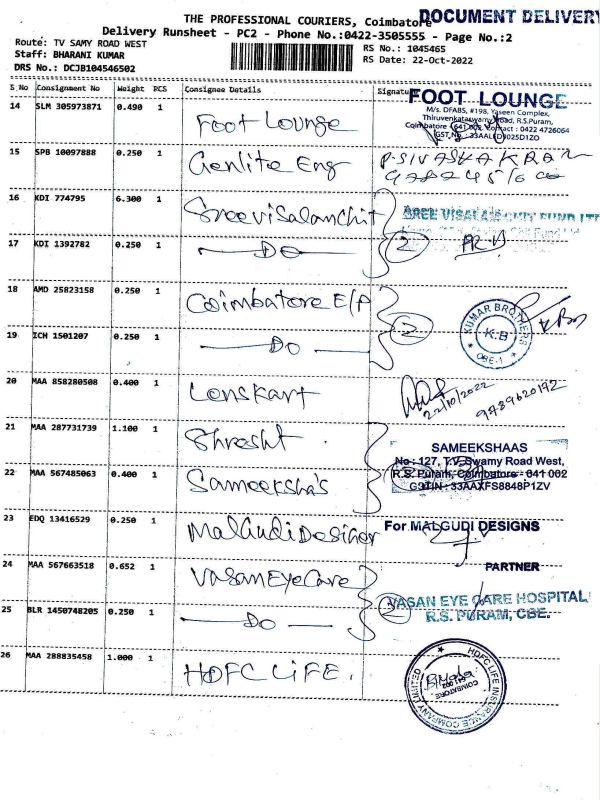 DOCUMENT DELIVERY
THE PROFESSIONAL COURIERS, Coimbatore
Delivery Runsheet - PC2 - Phone No.:0422-3505555 - Page No.:2
Route: TV SAMY ROAD WEST
RS No.: 1045465
Staff: BHARANI KUMAR
RS Date: 22-Oct-2022
DRS No.: DCJB104546502
S_No Consignment No Weight PCS Consignee Details Signature
FOOT LOUNGE
M/s. DFABS, #198, Yaseen Complex,
Thiruvenkataswamy Road, R.S.Puram,
Coimbatore 641 002. Contact : 0422 4726064
14 SLM 305973871 0.490 1 Foot Lounge
15 SPB 10097888 0.250 1 Genlite Eng
16 KDI 774795 6.300 1 SreeviSalamchit
SREE VISALAM CHIT FUND LTD
17 KDI 1392782 0.250 1 — Do — 2
18 AMD 25823158 0.250 1 Coimbatore E/P
KUMAR BROTHERS
K.B
CBE-1
19 ICH 1501207 0.250 1 — Do — 2
20 MAA 858280508 0.400 1 Lenskart
22/10/2022
9789620192
21 MAA 287731739 1.100 1 Shresht
SAMEEKSHAAS
No: 127, T.V. Swamy Road West,
R.S. Puram, Coimbatore - 641 002
GSTIN : 33AAXFS8848P1ZV
22 MAA 567485063 0.400 1 Sameeksha's
23 EDQ 13416529 0.250 1 Malgudi Designer
For MALGUDI DESIGNS
PARTNER
24 MAA 567663518 0.652 1 Vasan Eye Care
VASAN EYE CARE HOSPITAL
R.S. PURAM, CBE.
25 BLR 1450748205 0.250 1 — Do — 2
26 MAA 288835458 1.000 1 HDFC LIFE.
HDFC LIFE INSURANCE COMPANY LIMITED
COIMBATORE
641 002